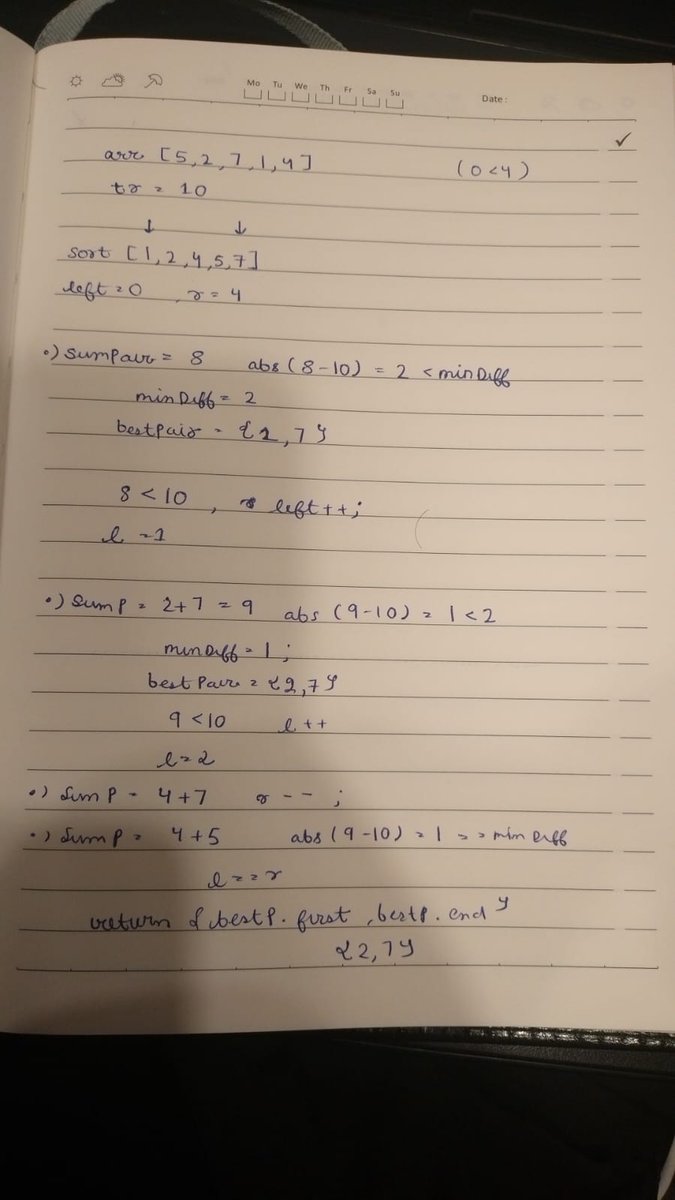 Mo Tu We Th Fr Sa Su Date:
✓
arr [5,2,7,1,4] (0<4)
tr = 10
↓ ↓
sort [1,2,4,5,7]
left=0 , r=4
•) SumPair = 8 abs(8-10) = 2 < minDiff
minDiff = 2
bestpair = {1,7}
8<10 , left++;
l =1
•) Sum P = 2+7 = 9 abs (9-10) = 1<2
minDiff = 1;
best Pair = {2,7}
9<10 l++
l=2
•) Sum P = 4+7 r-- ;
•) Sum P = 4+5 abs(9-10) = 1 == min Diff
l==r
return {bestP.first, bestp.end}
{2,7}